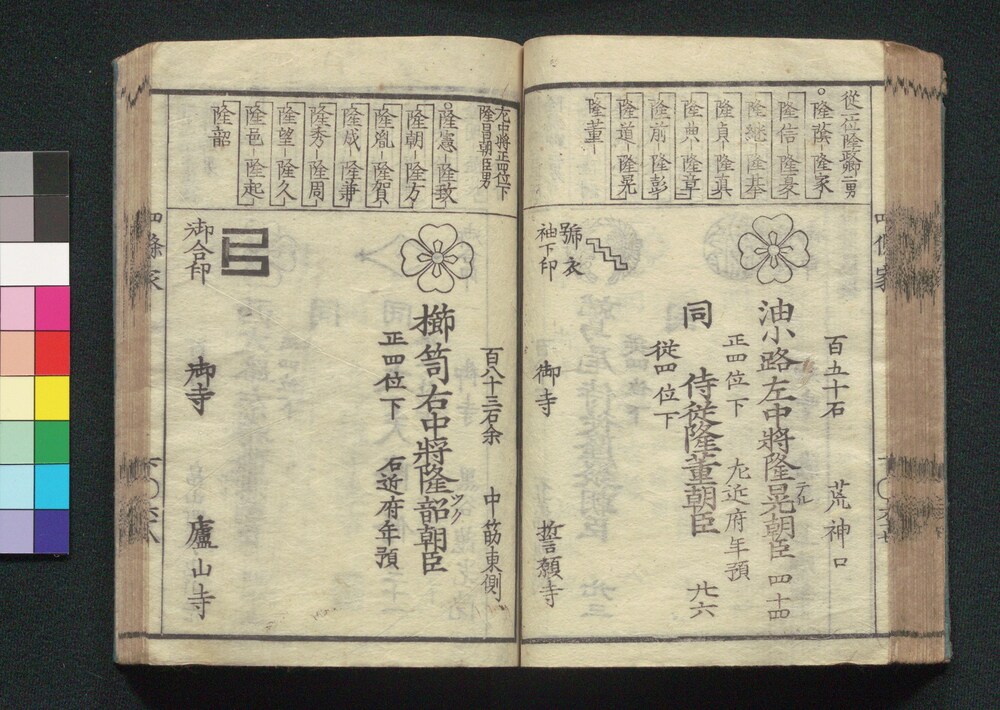 四條家
從一位隆蔭卿二男
隆蔭
隆家
隆信
隆夏
隆継
隆基
隆貞
隆真
隆典
隆章
隆前
隆彭
隆道
隆晃
隆董
百五十石 荒神口
油小路左中將隆晃朝臣 四十四
テル
正四位下 左近府年預
同 侍従隆董朝臣 廿六
従四位下
號衣
袖下印
御寺 誓願寺
左中將正四位下
隆昌朝臣男
隆憲
隆致
隆朝
隆方
隆胤
隆賀
隆成
隆兼
隆秀
隆周
隆望
隆久
隆邑
隆起
隆韶
百八十三石余 中筋東側
櫛笥右中將隆韶朝臣
ツク
正四位下 右近府年預
御合印
御寺 廬山寺
四條家